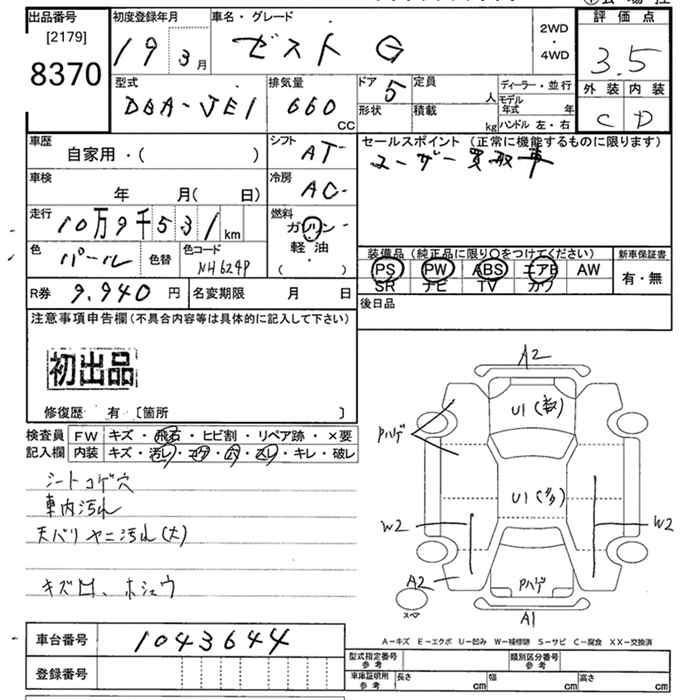 出品番号
[2179]
8370
初度登録年月
19 3月
車名・グレード
ゼスト G
2WD
・
4WD
評価点
3.5
外装 内装
C D
型式
DBA-JE1
排気量
660 CC
ドア 5
形状
定員 人
積載 kg
ディーラー・並行
モデル年式 年
ハンドル 左・右
車歴
自家用・( )
シフト
AT
セールスポイント (正常に機能するものに限ります)
ユーザー買取車
車検
年 月( 日)
冷房
AC
走行
10万9千531km
燃料
ガソリン
軽・油
( )
色
パール
色替
色コード
NH624P
装備品 (純正品に限り○をつけてください)
PS PW ABS エアB AW
SR ナビ TV カワ
新車保証書
有・無
R券 9.940 円
名変期限 月 日
後日品
注意事項申告欄 (不具合内容等は具体的に記入して下さい)
初出品
修復歴 有 〔箇所 〕
検査員
記入欄
FW キズ・飛石・ヒビ割・リペア跡・×要
内装 キズ・汚レ・コゲ・穴・スレ・キレ・破レ
シートコゲ穴
車内汚れ
天バリヤニ汚れ(大)
キズ凹、ホシュウ
A2
U1(数)
Pハゲ
U1(多)
W2
W2
A2
Pハゲ
A1
スペア
A-キズ E-エクボ U-凹み W-補修跡 S-サビ C-腐食 XX-交換済
車台番号 1043644
登録番号
型式指定番号
参考
類別区分番号
参考
車庫証明用
参考
長さ cm
幅 cm
高さ cm